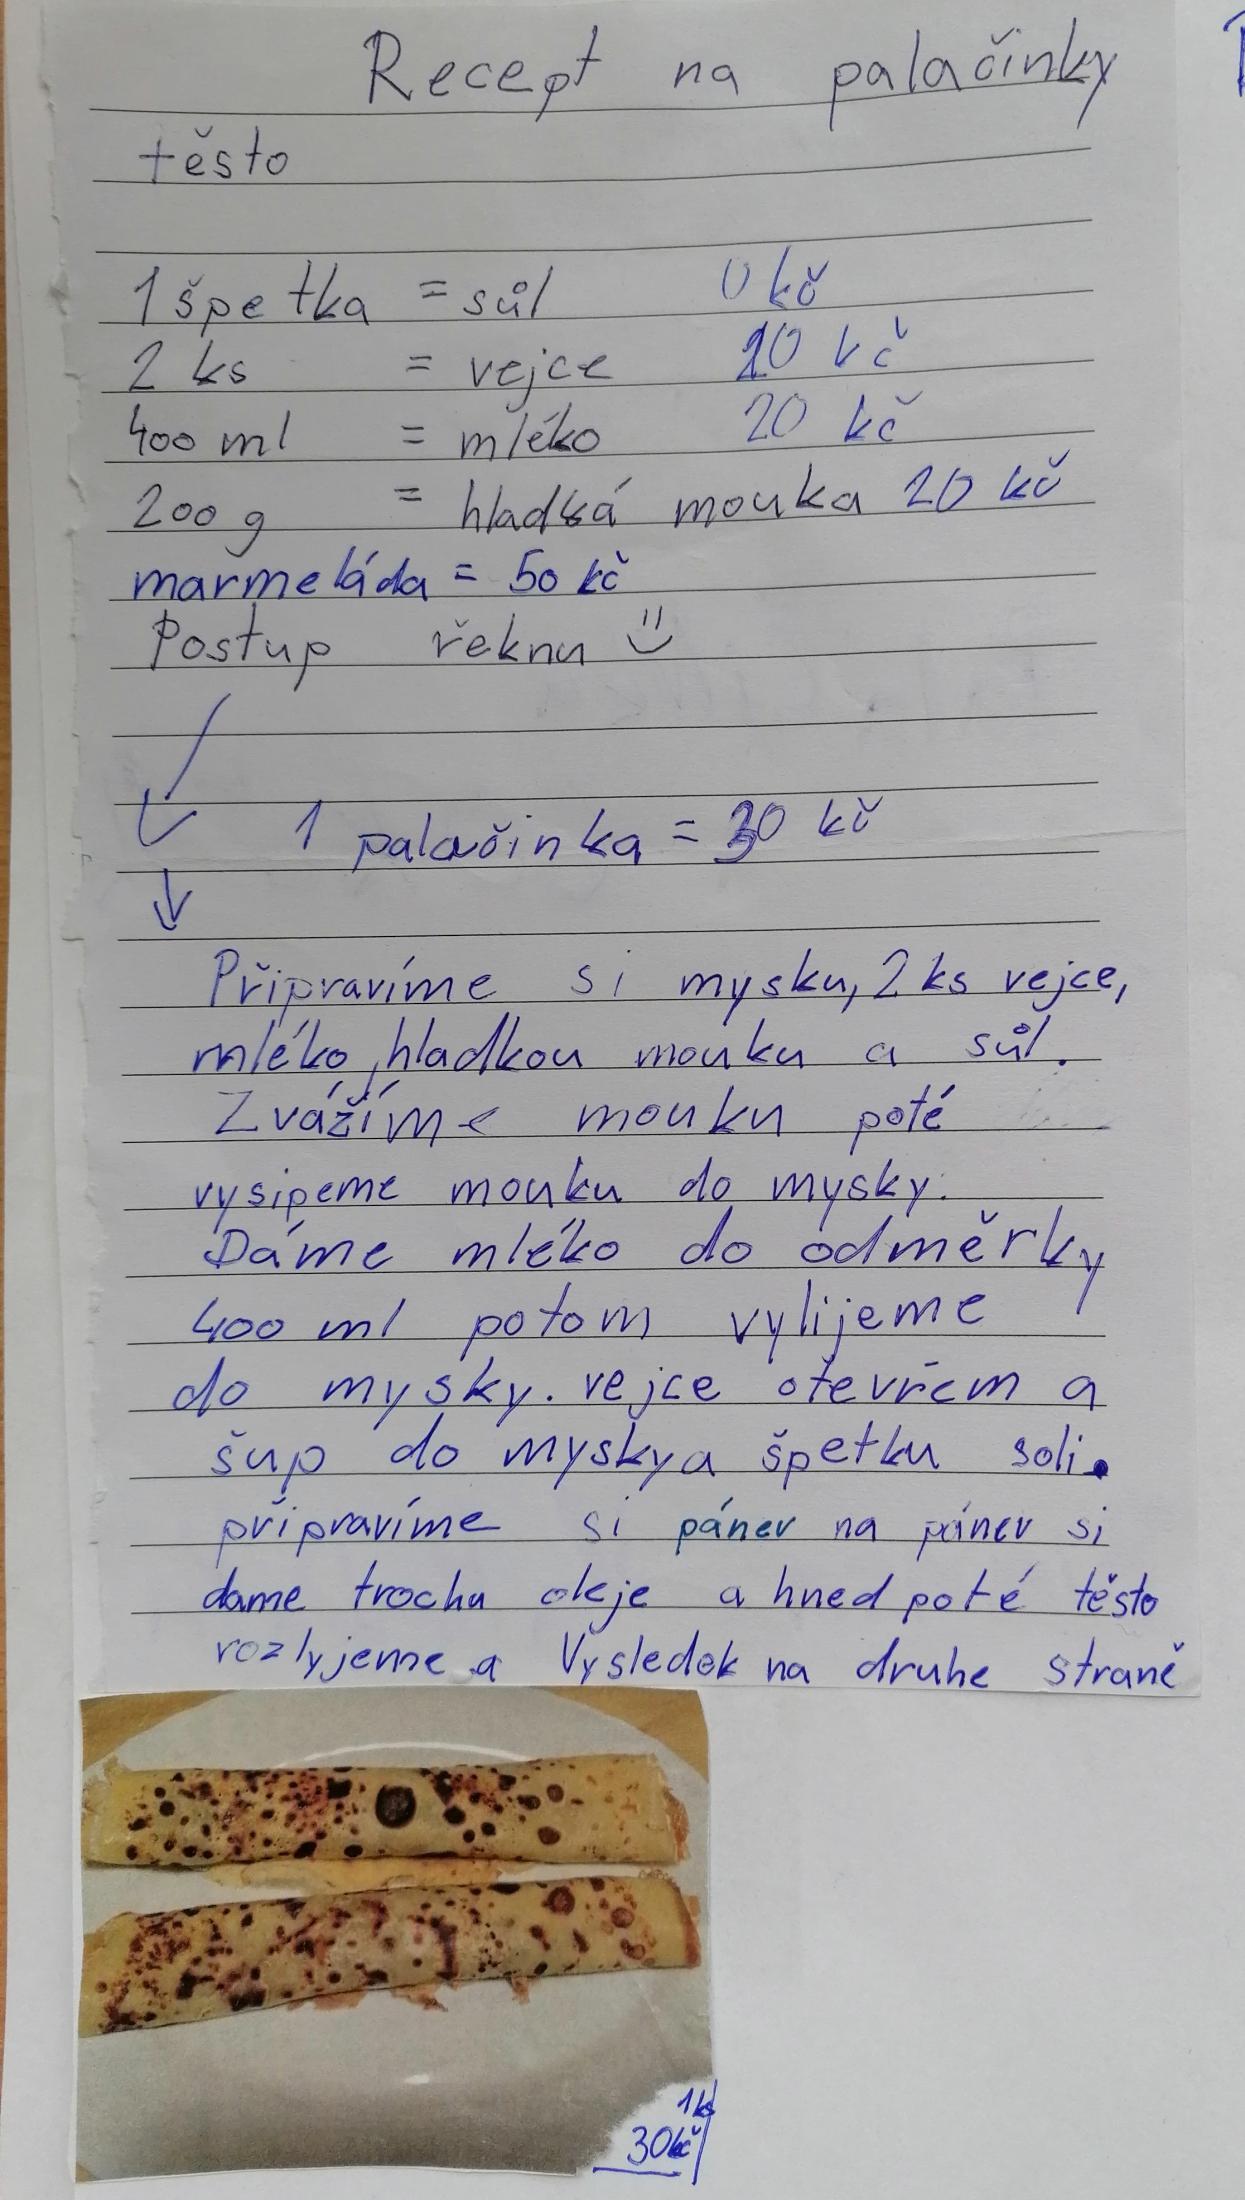 Recept na palačinky
těsto
1 špetka = sůl 0 kč
2 ks = vejce 10 kč
400 ml = mléko 20 kč
200 g = hladká mouka 20 kč
marmeláda = 50 kč
Postup řeknu
1 palačinka = 30 kč
Připravíme si mysku, 2 ks vejce,
mléko, hladkou mouku a sůl.
Zvážíme mouku poté
vysipeme mouku do mysky.
Dáme mléko do odměrky
400 ml potom vylijeme
do mysky. vejce otevřem a
šup do mysky a špetku soli.
připravíme si pánev na pánev si
dame trochu oleje a hned poté těsto
rozlyjeme a Vysledek na druhe straně
1 ks
30 kč